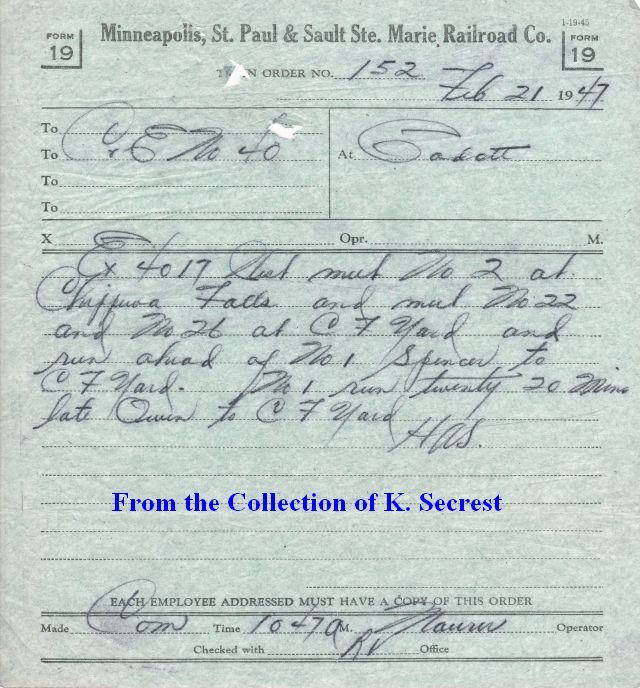 1-19-45
FORM 19
Minneapolis, St. Paul & Sault Ste. Marie Railroad Co.
FORM 19
TRAIN ORDER NO. 152
Feb 21 1947
To
To C&E No 40
At Cadott
To
To
X Opr. M.
Ex 4017 West meet No 2 at
Chippewa Falls and meet No 22
and No 26 at C F Yard and
run ahead of No 1 Spencer to
C F Yard. No 1 run twenty 20 Mins
late Owen to C F Yard
HAS.
From the Collection of K. Secrest
EACH EMPLOYEE ADDRESSED MUST HAVE A COPY OF THIS ORDER
Made Com Time 1047A M. Maurer Operator
Checked with Office